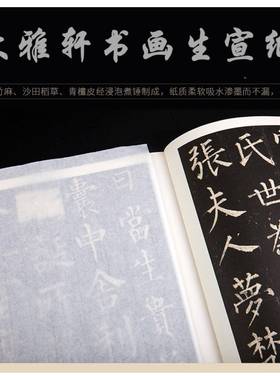 雅轩书画生宣纸
竹麻、沙田稻草、青檀皮经浸泡煮锤制成，纸质柔软吸水渗墨而不漏，
氏世為
張夫人夢梵
曰當生貴
囊中舍利